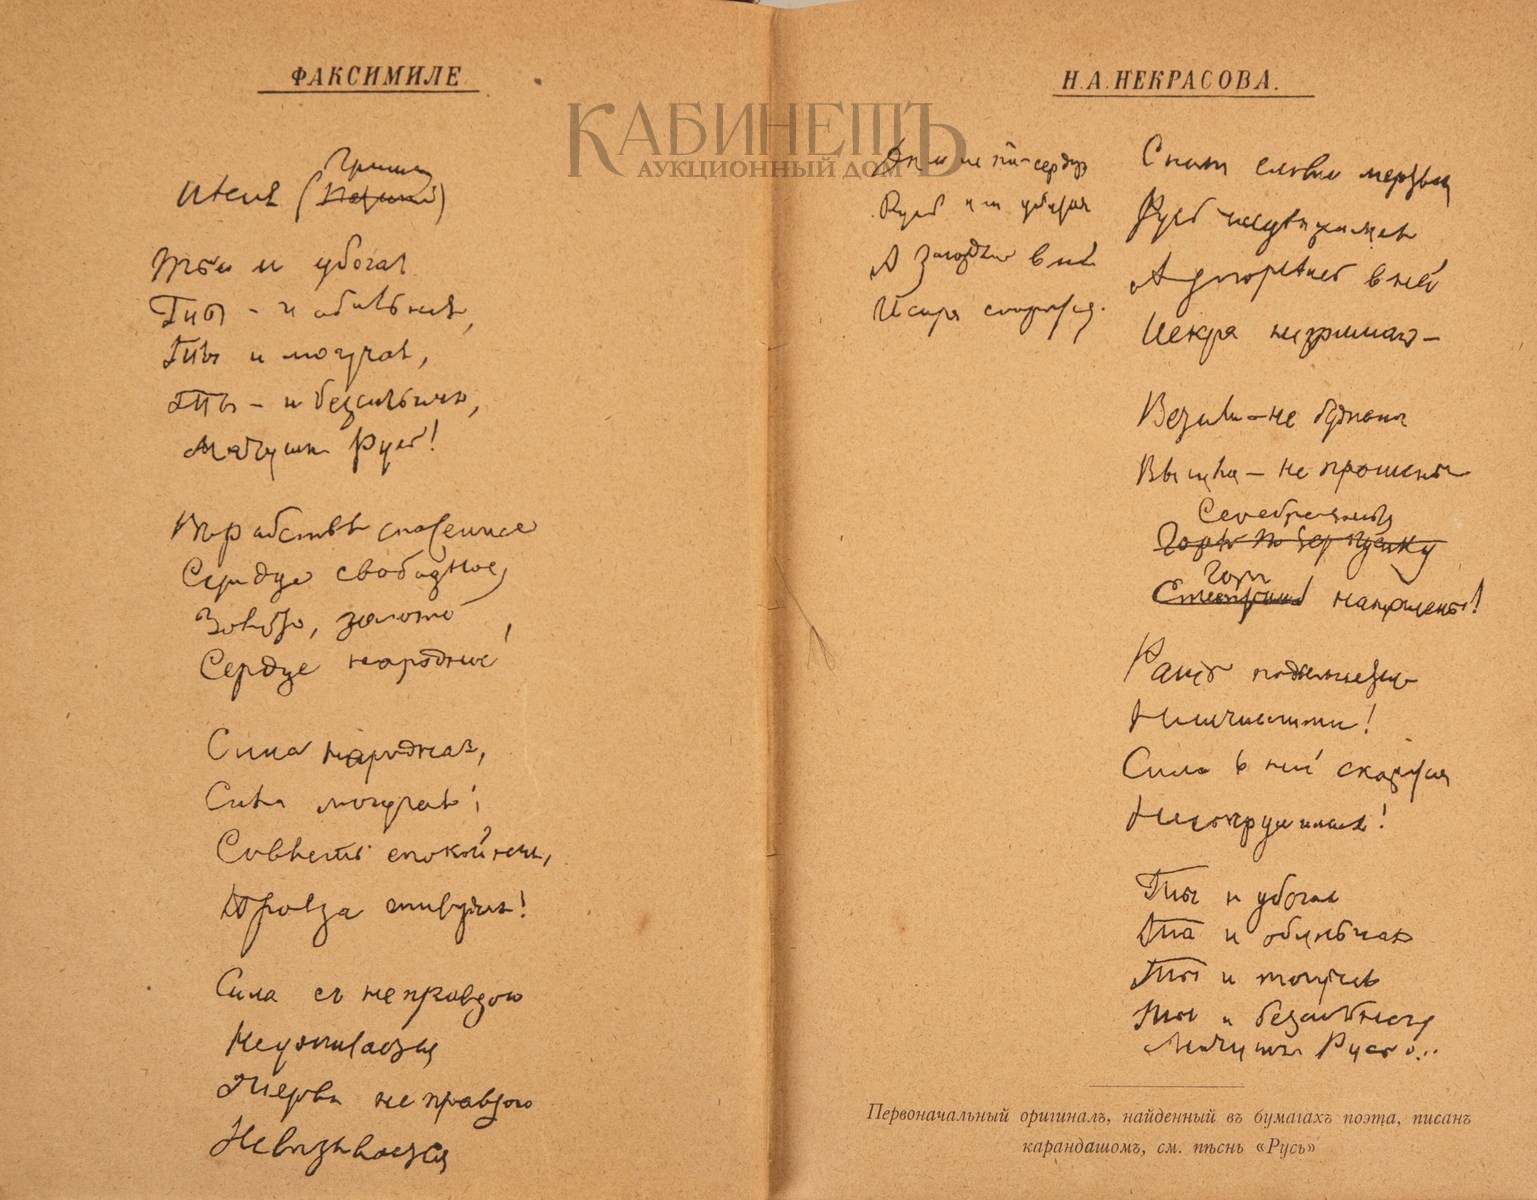 ФАКСИМИЛЕ
Гриши
Пѣсня
Ты и убогая
Ты – и обильная,
Ты и могучая,
Ты – и безсильная,
Матушка Русь!
Въ рабствѣ спасенное
Сердце свободное,
Золото, золото
Сердце народное!
Сила народная,
Сила могучая;
Совѣсть спокойная,
Правда живучая!
Сила съ неправдою
Неуживается
Жертва неправдою
Невызывается
Н.А.НЕКРАСОВА.
КАБИНЕТЪ
АУКЦИОННЫЙ ДОМ
Русь
А въ ней
Искра
Русь
А въ ней
Искра
Встали – не бужены
Вышли – не прошены
Горы
наношены!
Рать подымается
Неисчислимая!
Сила въ ней скажется
Несокрушимая!
Ты и убогая
Ты и обильная
Ты и могучая
Ты и безсильная
Матушка Русь!...
Первоначальный оригиналъ, найденный въ бумагахъ поэта, писанъ
карандашомъ, см. пѣснь «Русь»